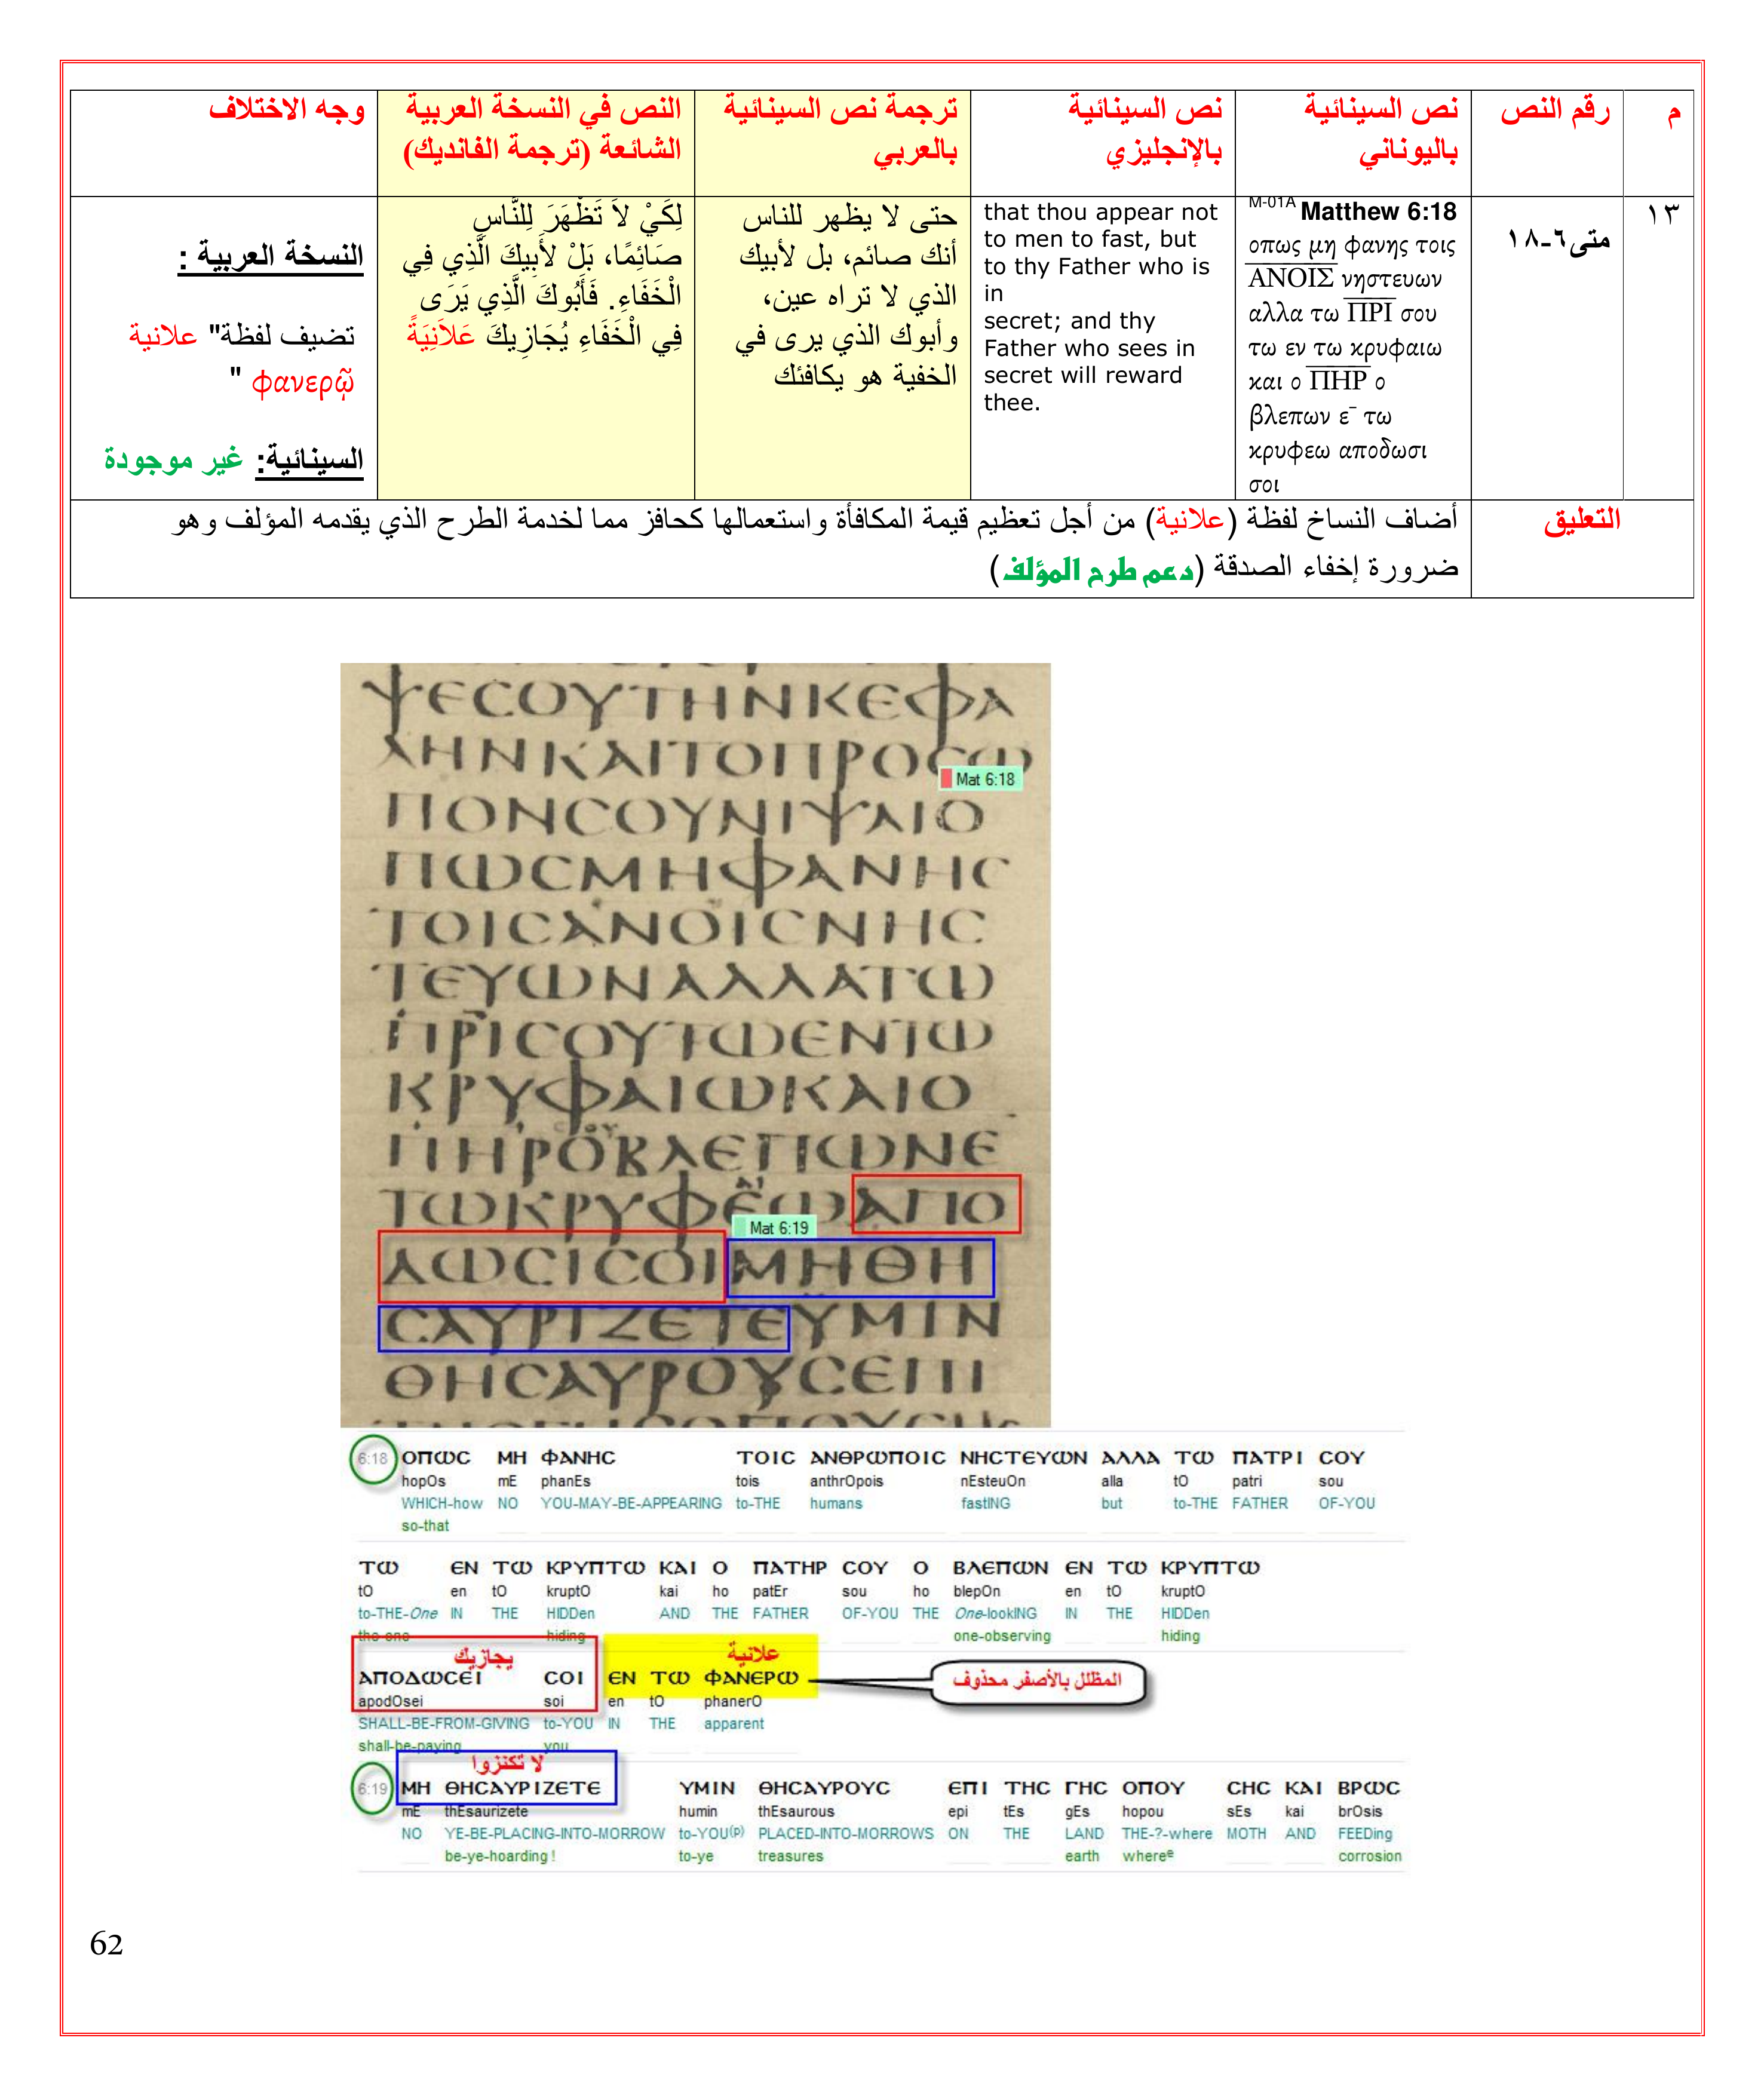 م
رقم النص
نص السينائية
باليوناني
نص السينائية
بالإنجليزي
ترجمة نص السينائية
بالعربي
النص في النسخة العربية
الشائعة (ترجمة الفانديك)
وجه الاختلاف
١٣
متى٦-١٨
M-01A Matthew 6:18
οπως μη φανης τοις
ΑΝΟΙΣ νηστευων
αλλα τω ΠΡΙ σου
τω εν τω κρυφαιω
και ο ΠΗΡ ο
βλεπων ε¯ τω
κρυφεω αποδωσι
σοι
that thou appear not
to men to fast, but
to thy Father who is
in
secret; and thy
Father who sees in
secret will reward
thee.
حتى لا يظهر للناس
أنك صائم، بل لأبيك
الذي لا تراه عين،
وأبوك الذي يرى في
الخفية هو يكافئك
لِكَيْ لاَ تَظْهَرَ لِلنَّاسِ
صَائِمًا، بَلْ لأَبِيكَ الَّذِي فِي
الْخَفَاءِ. فَأَبُوكَ الَّذِي يَرَى
فِي الْخَفَاءِ يُجَازِيكَ عَلاَنِيَةً
النسخة العربية :
تضيف لفظة" علانية
φανερῷ "
السينائية: غير موجودة
التعليق
أضاف النساخ لفظة (علانية) من أجل تعظيم قيمة المكافأة واستعمالها كحافز مما لخدمة الطرح الذي يقدمه المؤلف وهو
ضرورة إخفاء الصدقة (دعم طرح المؤلف)
ΨΕϹΟΥΤΗΝΚΕΦΑ
ΛΗΝΚΑΙΤΟΠΡΟϹΩ
Mat 6:18
ΠΟΝϹΟΥΝΙΨΑΙΟ
ΠΩϹΜΗΦΑΝΗϹ
ΤΟΙϹΑΝΟΙϹΝΗϹ
ΤΕΥΩΝΑΛΛΑΤΩ
ΠΡΙϹΟΥΤΩΕΝΤΩ
ΚΡΥΦΑΙΩΚΑΙΟ
ΠΗΡΟΒΛΕΠΩΝΕ
ΤΩΚΡΥΦΕΩΑΠΟ
Mat 6:19
ΔΩϹΙϹΟΙΜΗΘΗ
ϹΑΥΡΙΖΕΤΕΥΜΙΝ
ΘΗϹΑΥΡΟΥϹΕΠΙ
6:18 ΟΠΩϹ ΜΗ ΦΑΝΗϹ ΤΟΙϹ ΑΝΘΡΩΠΟΙϹ ΝΗϹΤΕΥΩΝ ΑΛΛΑ ΤΩ ΠΑΤΡΙ ϹΟΥ
hopOs mE phanEs tois anthrOpois nEsteuOn alla tO patri sou
WHICH-how NO YOU-MAY-BE-APPEARING to-THE humans fastING but to-THE FATHER OF-YOU
so-that
ΤΩ ΕΝ ΤΩ ΚΡΥΠΤΩ ΚΑΙ Ο ΠΑΤΗΡ ϹΟΥ Ο ΒΛΕΠΩΝ ΕΝ ΤΩ ΚΡΥΠΤΩ
tO en tO kruptO kai ho patEr sou ho blepOn en tO kruptO
to-THE-One IN THE HIDDen AND THE FATHER OF-YOU THE One-lookING IN THE HIDDen
the-one hiding one-observing hiding
يجازيك علانية
ΑΠΟΔΩϹΕΙ ϹΟΙ ΕΝ ΤΩ ΦΑΝΕΡΩ
المظلل بالأصفر محذوف
apodOsei soi en tO phanerO
SHALL-BE-FROM-GIVING to-YOU IN THE apparent
shall-be-paying you
لا تكنزوا
6:19 ΜΗ ΘΗϹΑΥΡΙΖΕΤΕ ΥΜΙΝ ΘΗϹΑΥΡΟΥϹ ΕΠΙ ΤΗϹ ΓΗϹ ΟΠΟΥ ϹΗϹ ΚΑΙ ΒΡΩϹΙϹ
mE thEsaurizete humin thEsaurous epi tEs gEs hopou sEs kai brOsis
NO YE-BE-PLACING-INTO-MORROW to-YOU(p) PLACED-INTO-MORROWS ON THE LAND THE-?-where MOTH AND FEEDing
be-ye-hoarding ! to-ye treasures earth whereᵉ corrosion
62